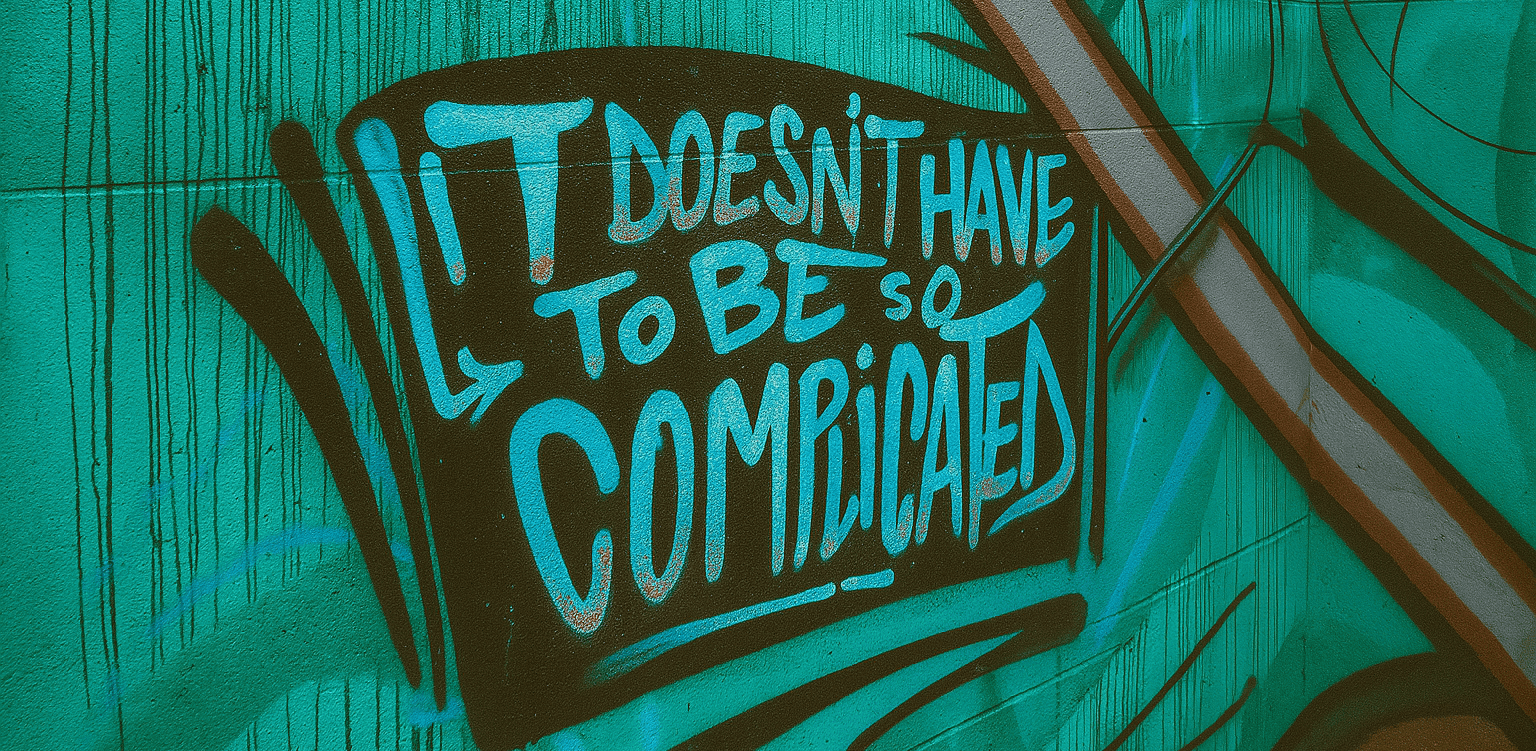 iT DOESN'T HAVE
TO BE SO
COMPLiCATED